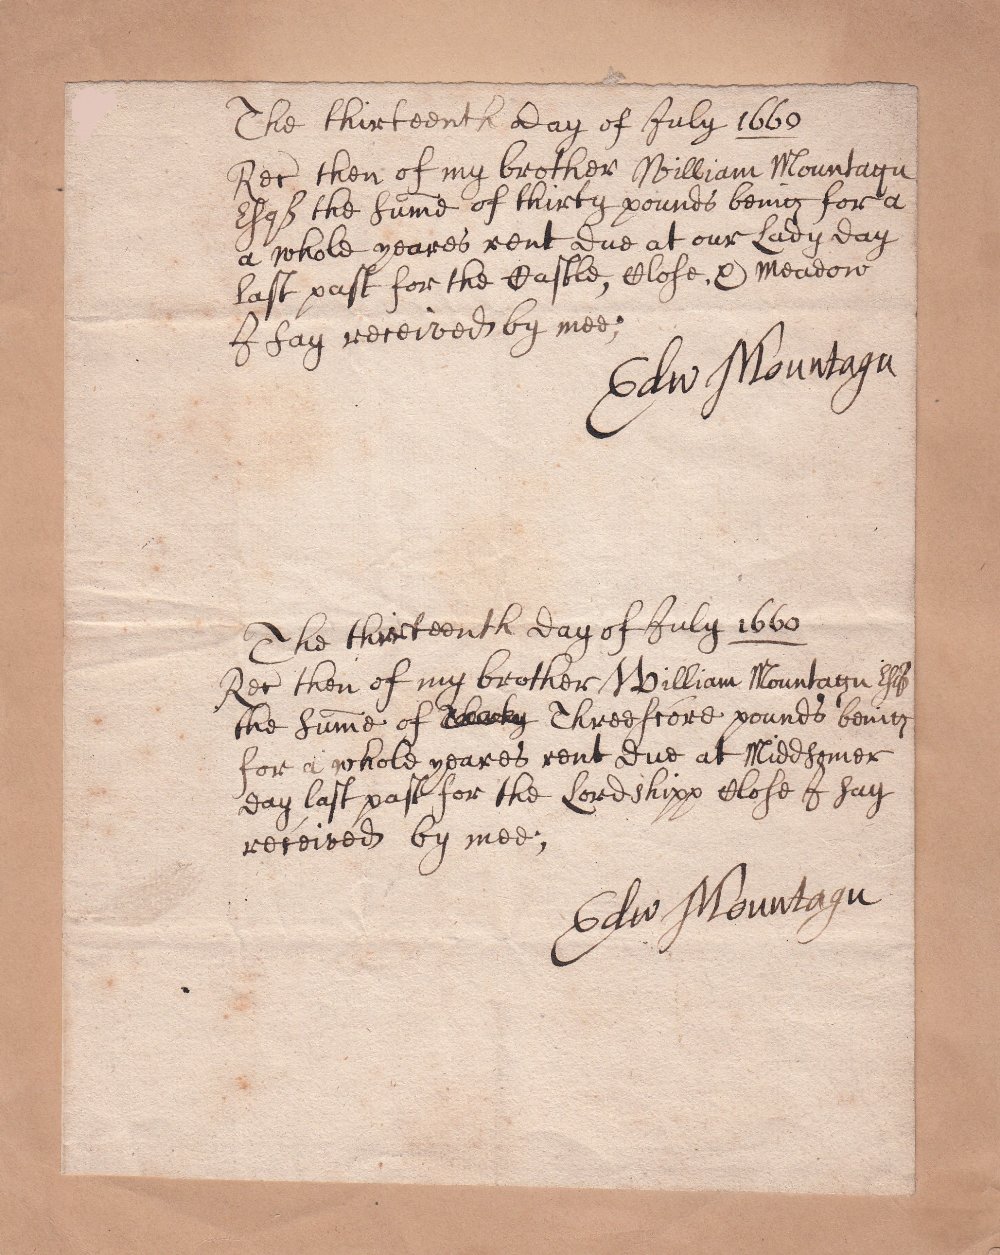 The thirteenth day of July 1660
Rec then of my brother William Mountagu
Esqr the sum̄e of thirty pounds being for a
a whole yeares rent due at our Lady day
last past for the Castle, Close, & Meadow
I say received by mee;
Edw Mountagu
The thirteenth day of July 1660
Rec then of my brother William Mountagu Esqr
the sum̄e of Threescore pounds being
for a whole yeares rent due at Middsomer
day last past for the Lordshipp Close I say
received by mee;
Edw Mountagu